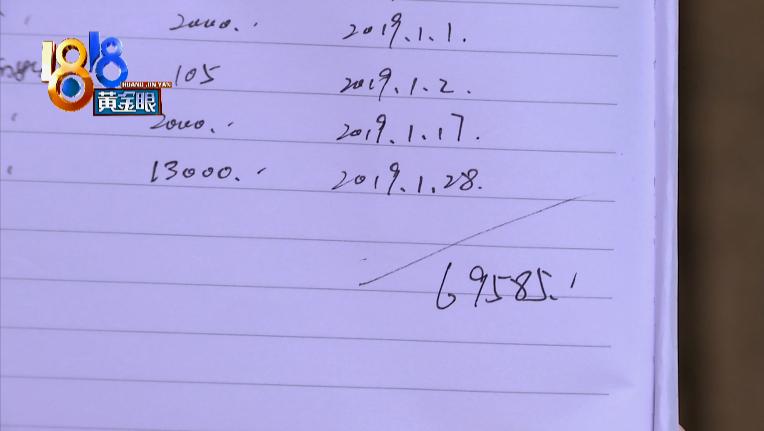 2000. 2019.1.1.
1818
HUANG JIN YAN
105 2019.1.2.
黄金眼
2000. 2019.1.17.
13000. 2019.1.28.
69585.